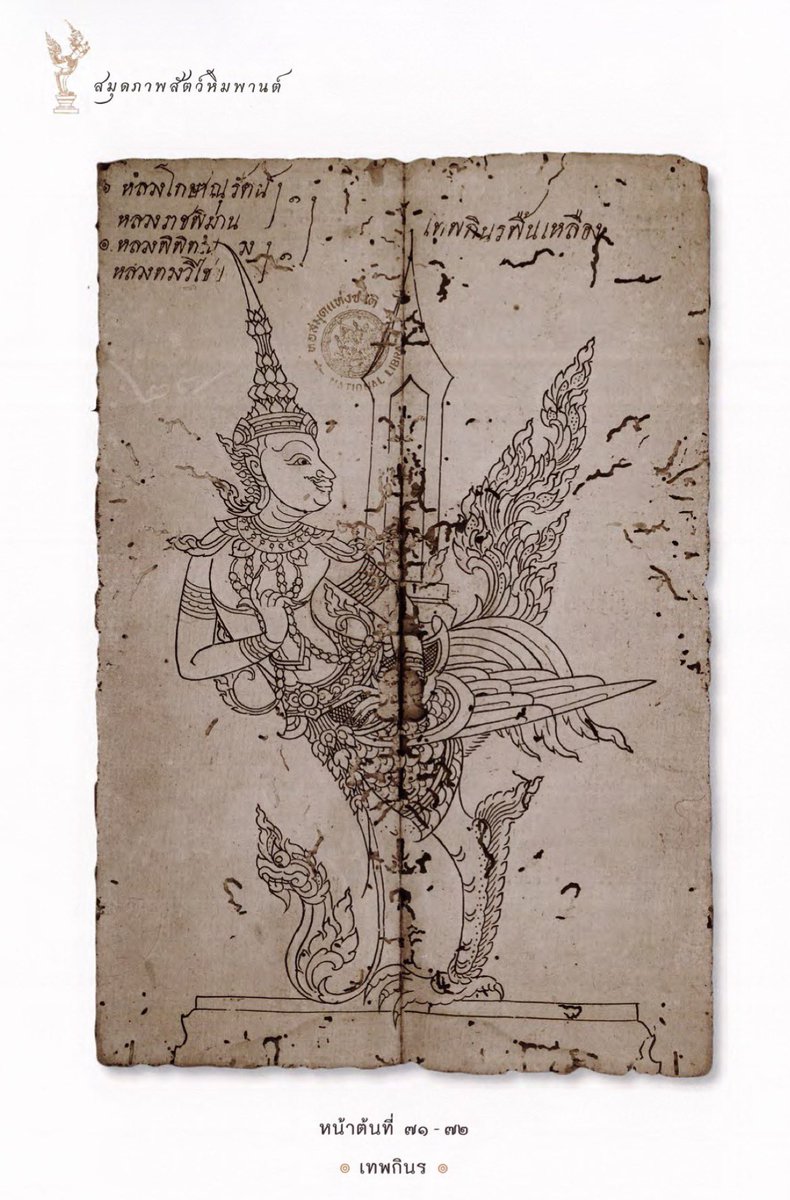 สมุดภาพสัตว์หิมพานต์
๖ หลวงโกษาณุรัตน์ ๑
หลวงราชพิมาน
๑ หลวงพิพิท
หลวงทรงวิไชย
เทพกินรพื้นเหลือง
หอสมุดแห่งชาติ
NATIONAL LIBRA
หน้าต้นที่ ๗๑ - ๗๒
เทพกินร